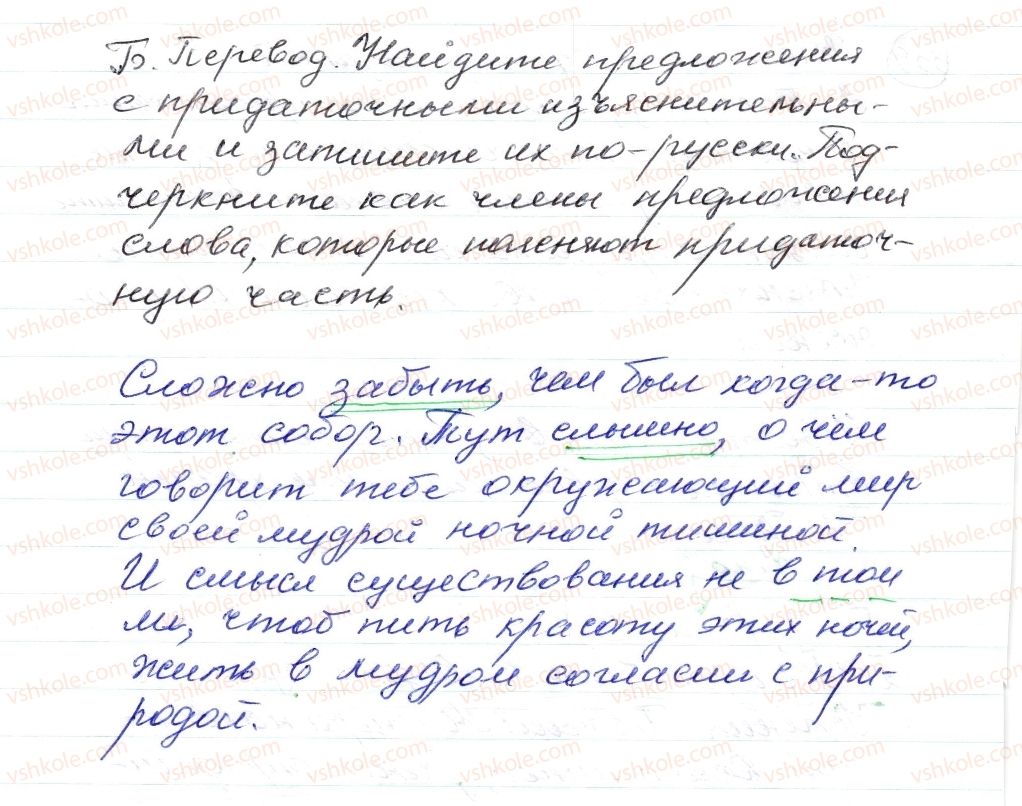 Б. Перевод. Найдите предложения
с придаточными изъяснительны-
ми и запишите их по-русски. Под-
черкните как члены предложения
слова, которые поясняют придаточ-
ную часть.
Сложно забыть, чем был когда-то
этот собор. Тут слышно, о чём
говорит тебе окружающий мир
своей мудрой ночной тишиной.
И смысл существования не в той
ли, чтоб пить красоту этих ночей,
жить в мудром согласии с при-
родой.
vshkole.com